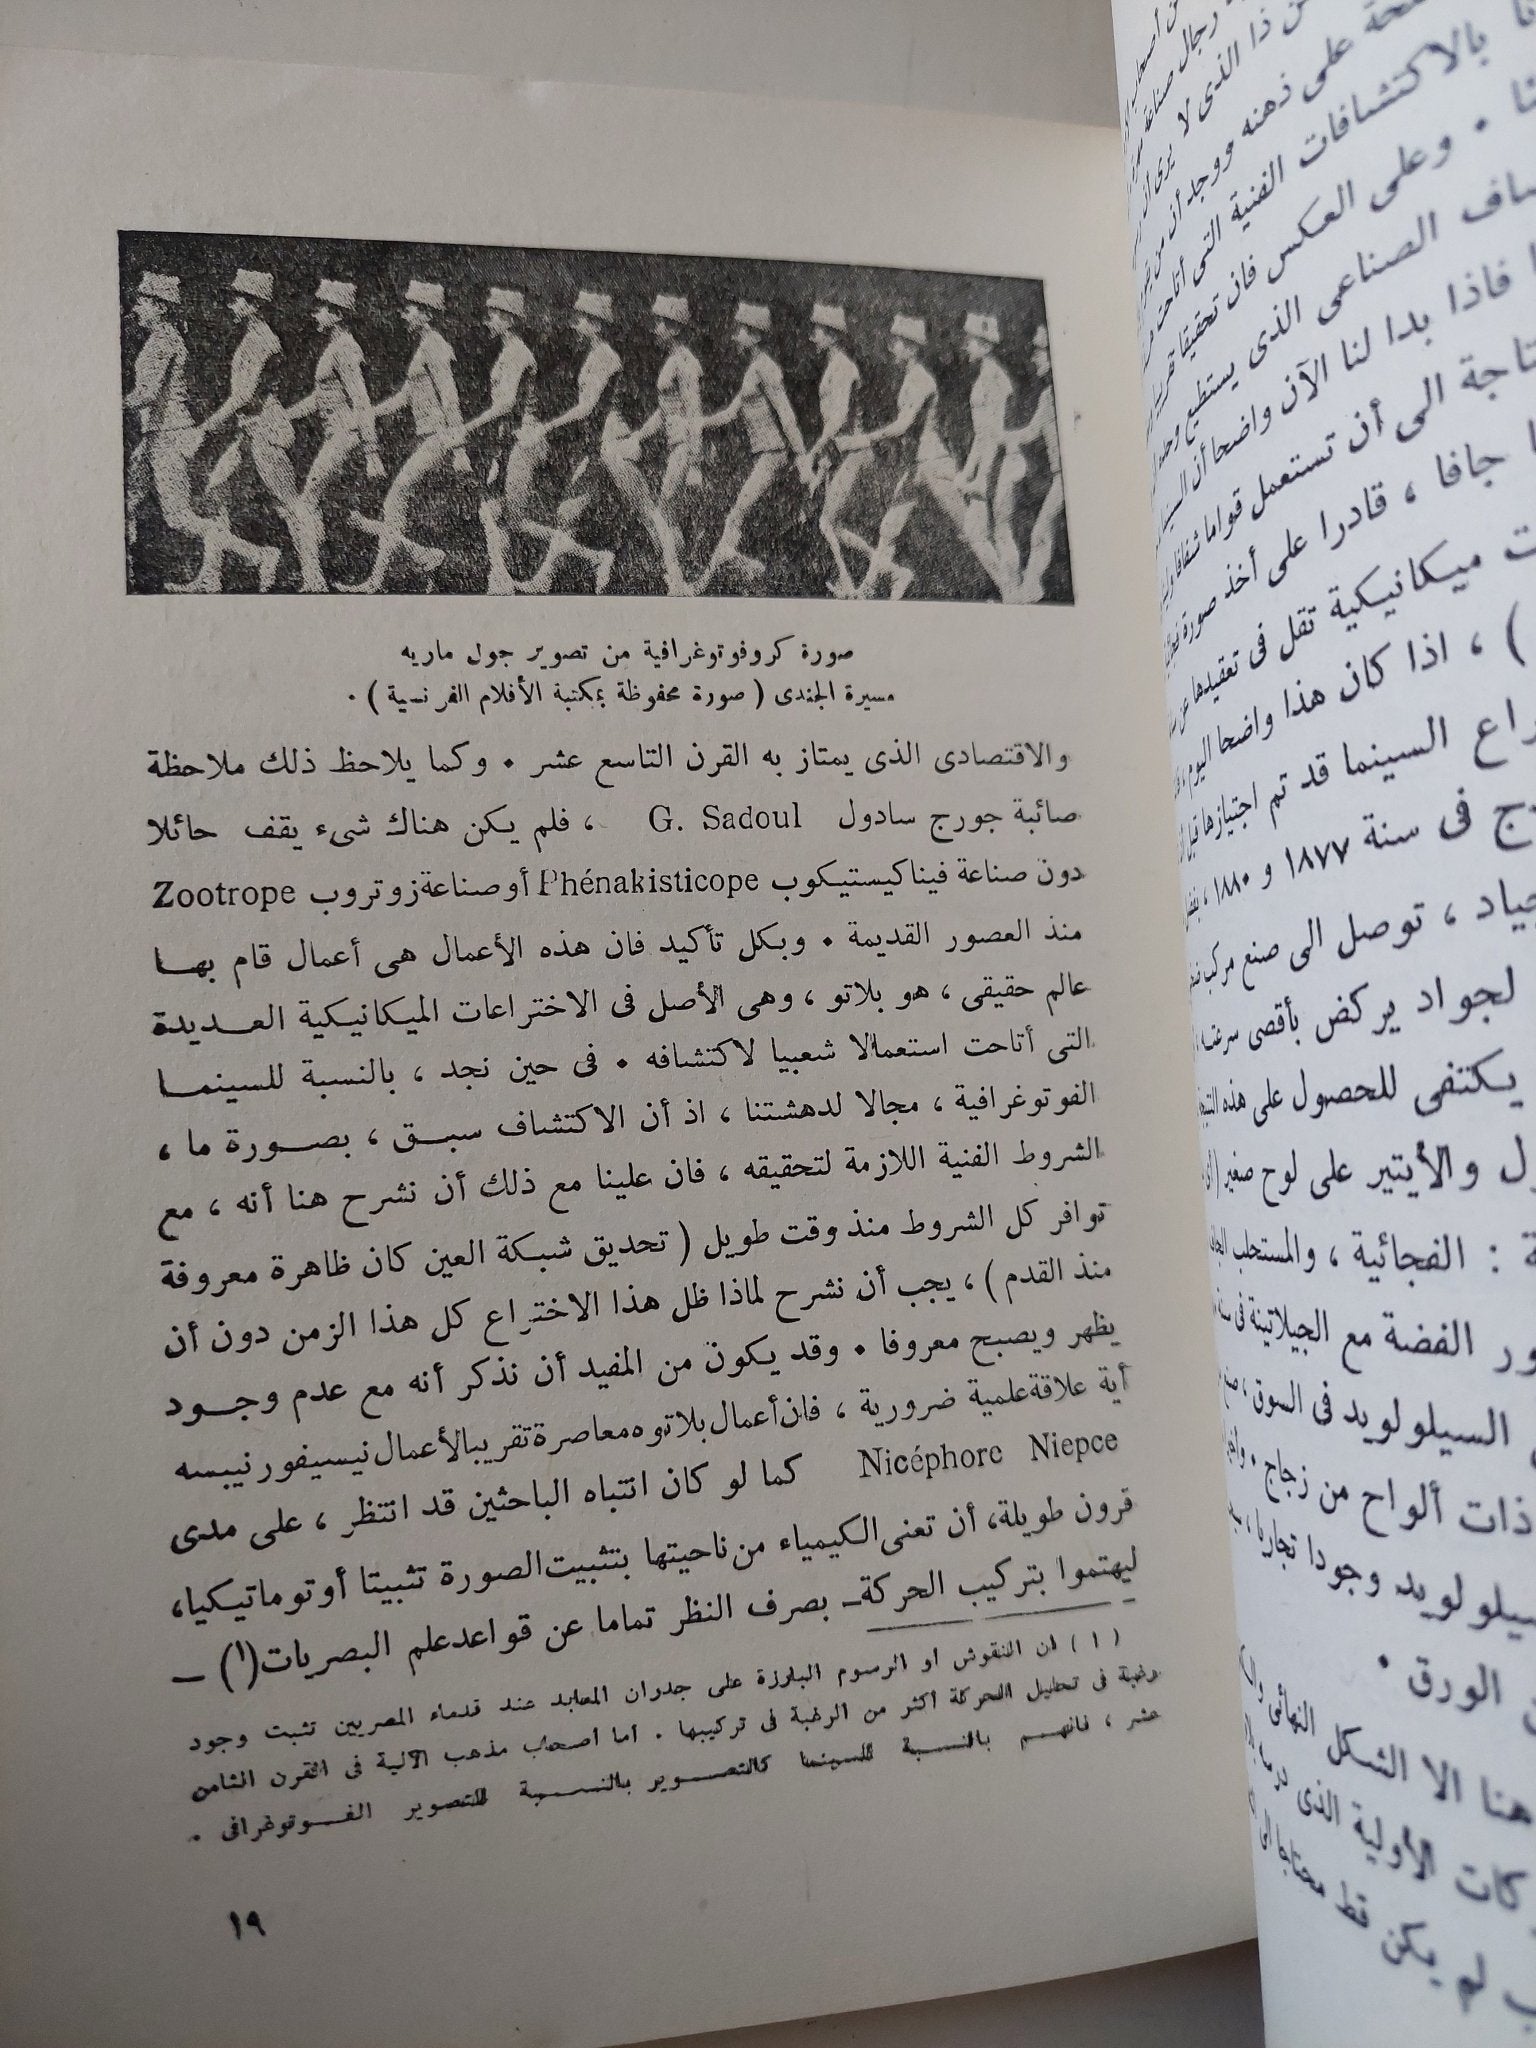 صورة كروفوتوغرافية من تصوير جول ماريه
مسيرة الجندى ( صورة محفوظة بمكتبة الأفلام الفرنسية ) .
والاقتصادى الذى يمتاز به القرن التاسع عشر . وكما يلاحظ ذلك ملاحظة
صائبة جورج سادول G. Sadoul ، فلم يكن هناك شىء يقف حائلا
دون صناعة فيناكيستيكوب Phénakisticope أو صناعة زوتروب Zootrope
منذ العصور القديمة . وبكل تأكيد فان هذه الأعمال هى أعمال قام بها
عالم حقيقى ، هو بلاتو ، وهى الأصل فى الاختراعات الميكانيكية العديدة
التى أتاحت استعمالا شعبيا لاكتشافه . فى حين نجد ، بالنسبة للسينما
الفوتوغرافية ، مجالا لدهشتنا ، اذ أن الاكتشاف سبق ، بصورة ما ،
الشروط الفنية اللازمة لتحقيقه ، فان علينا مع ذلك أن نشرح هنا أنه ، مع
توافر كل الشروط منذ وقت طويل ( تحديق شبكة العين كان ظاهرة معروفة
منذ القدم ) ، يجب أن نشرح لماذا ظل هذا الاختراع كل هذا الزمن دون أن
يظهر ويصبح معروفا . وقد يكون من المفيد أن نذكر أنه مع عدم وجود
أية علاقة علمية ضرورية ، فان أعمال بلاتوه معاصرة تقريبا لأعمال نيسيفور نيبسه
Nicéphore Niepce كما لو كان انتباه الباحثين قد انتظر ، على مدى
قرون طويلة، أن تعنى الكيمياء من ناحيتها بتثبيت الصورة تثبيتا أوتوماتيكيا،
ليهتموا بتركيب الحركة ـ بصرف النظر تماما عن قواعد علم البصريات (١) ـ
( ١ ) ان النقوش او الرسوم البارزة على جدران المعابد عند قدماء المصريين تثبت وجود
رغبة فى تحليل الحركة أكثر من الرغبة فى تركيبها . اما أصحاب مذهب الآلية فى القرن الثامن
عشر ، فانهم بالنسبة للسينما كالتصوير بالنسبة للتصوير الفوتوغرافى .
١٩
على ذهنه ووجد أن من
بالاكتشافات الفنية التى أتاحت
وعلى العكس فان تحقيقا
الصناعى الذى يستطيع
فاذا بدا لنا الآن واضحا أن
الى أن تستعمل قواما شفافا
جافا ، قادرا على أخذ صورة
ميكانيكية تقل فى تعقيدها عن
) ، اذا كان هذا واضحا اليوم ،
السينما قد تم اجتيازها قبل
فى سنة ١٨٧٧ و ١٨٨٠ ،
، توصل الى صنع مركب
لجواد يركض بأقصى سرعته
يكتفى للحصول على هذه
والأيتير على لوح صغير
: الفجائية ، والمستحلب
الفضة مع الجيلاتينة فى
السيلولويد فى السوق ،
ذات ألواح من زجاج .
وجودا تجاريا ،
الورق .
هنا الا الشكل النهائى
الأولية الذى
لم يكن قط محتاجا الى